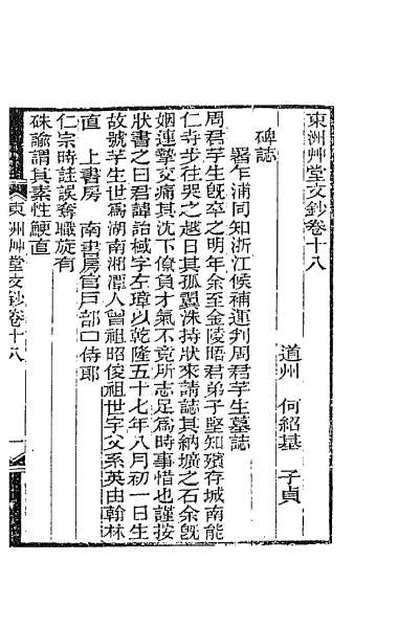 東洲艸堂文鈔卷十八
道州 何紹基 子貞
碑誌
署乍浦同知浙江候補運判周君芋生墓誌
周君芋生旣卒之明年余至金陵晤君弟子堅知殯存城南能
仁寺步往哭之越日其孤翼洙持狀來請誌其納壙之石余旣
姻連摯交痛其沈下僚負才氣不竟所志足爲時事惜也謹按
狀書之曰君諱詒棫字左璋以乾隆五十七年八月初一日生
故號芋生世爲湖南湘潭人曾祖昭俊祖世字父系英由翰林
直 上書房 南書房官戶部口侍郞
仁宗時詿誤奪職旋有
硃諭謂其素性鯁直
東洲艸堂文鈔卷十八 一